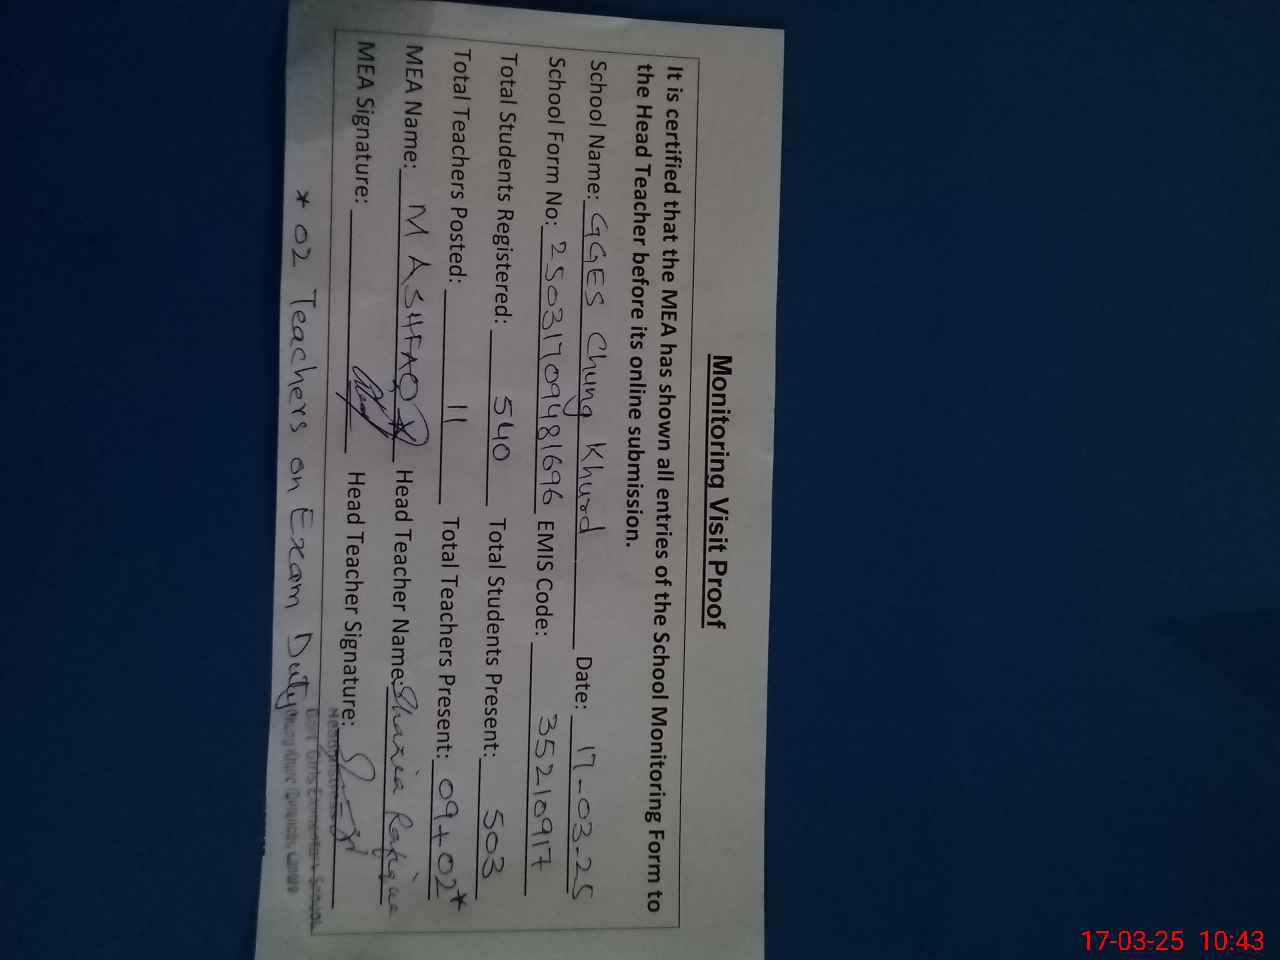 Monitoring Visit Proof
It is certified that the MEA has shown all entries of the School Monitoring Form to
the Head Teacher before its online submission.
School Name: GGES Chung Khurd Date: 17-03-25
School Form No: 2503170948 1696 EMIS Code: 35210917
Total Students Registered: 540 Total Students Present: 503
Total Teachers Posted: 11 Total Teachers Present: 09+02*
MEA Name: M ASHFAQ Head Teacher Name: Shazia Rafique
MEA Signature: Head Teacher Signature:
* 02 Teachers on Exam Duty
Govt. Girls Elementary School
17-03-25 10:43